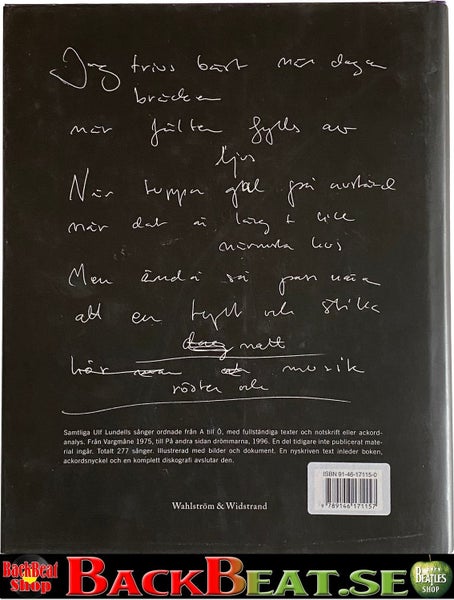 Jag trivs bäst när dagen
bräcker
när fälten fylls av
ljus
När tuppar gal på avstånd
när det är lång t till
närmsta hus
Men ändå så pass nära
att en tyst och stilla
dag natt
hör man och musik
röster och
Samtliga Ulf Lundells sånger ordnade från A till Ö, med fullständiga texter och notskrift eller ackord-
analys. Från Vargmåne 1975, till På andra sidan drömmarna, 1996. En del tidigare inte publicerat mate-
rial ingår. Totalt 277 sånger. Illustrerad med bilder och dokument. En nyskriven text inleder boken,
ackordsnyckel och en komplett diskografi avslutar den.
ISBN 91-46-17115-0
9 789146 171157
Wahlström & Widstrand
BackBeat
Shop
BACKBEAT.SE
BEATLES
SHOP